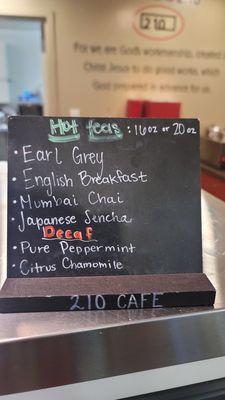 210
For we are God's workmanship, created
Christ Jesus to do good works, which
God prepared in advance for us
Hot teas : 16oz or 20oz
• Earl Grey
• English Breakfast
• Mumbai Chai
• Japanese Sencha
Decaf
• Pure Peppermint
• Citrus Chamomile
210 CAFE